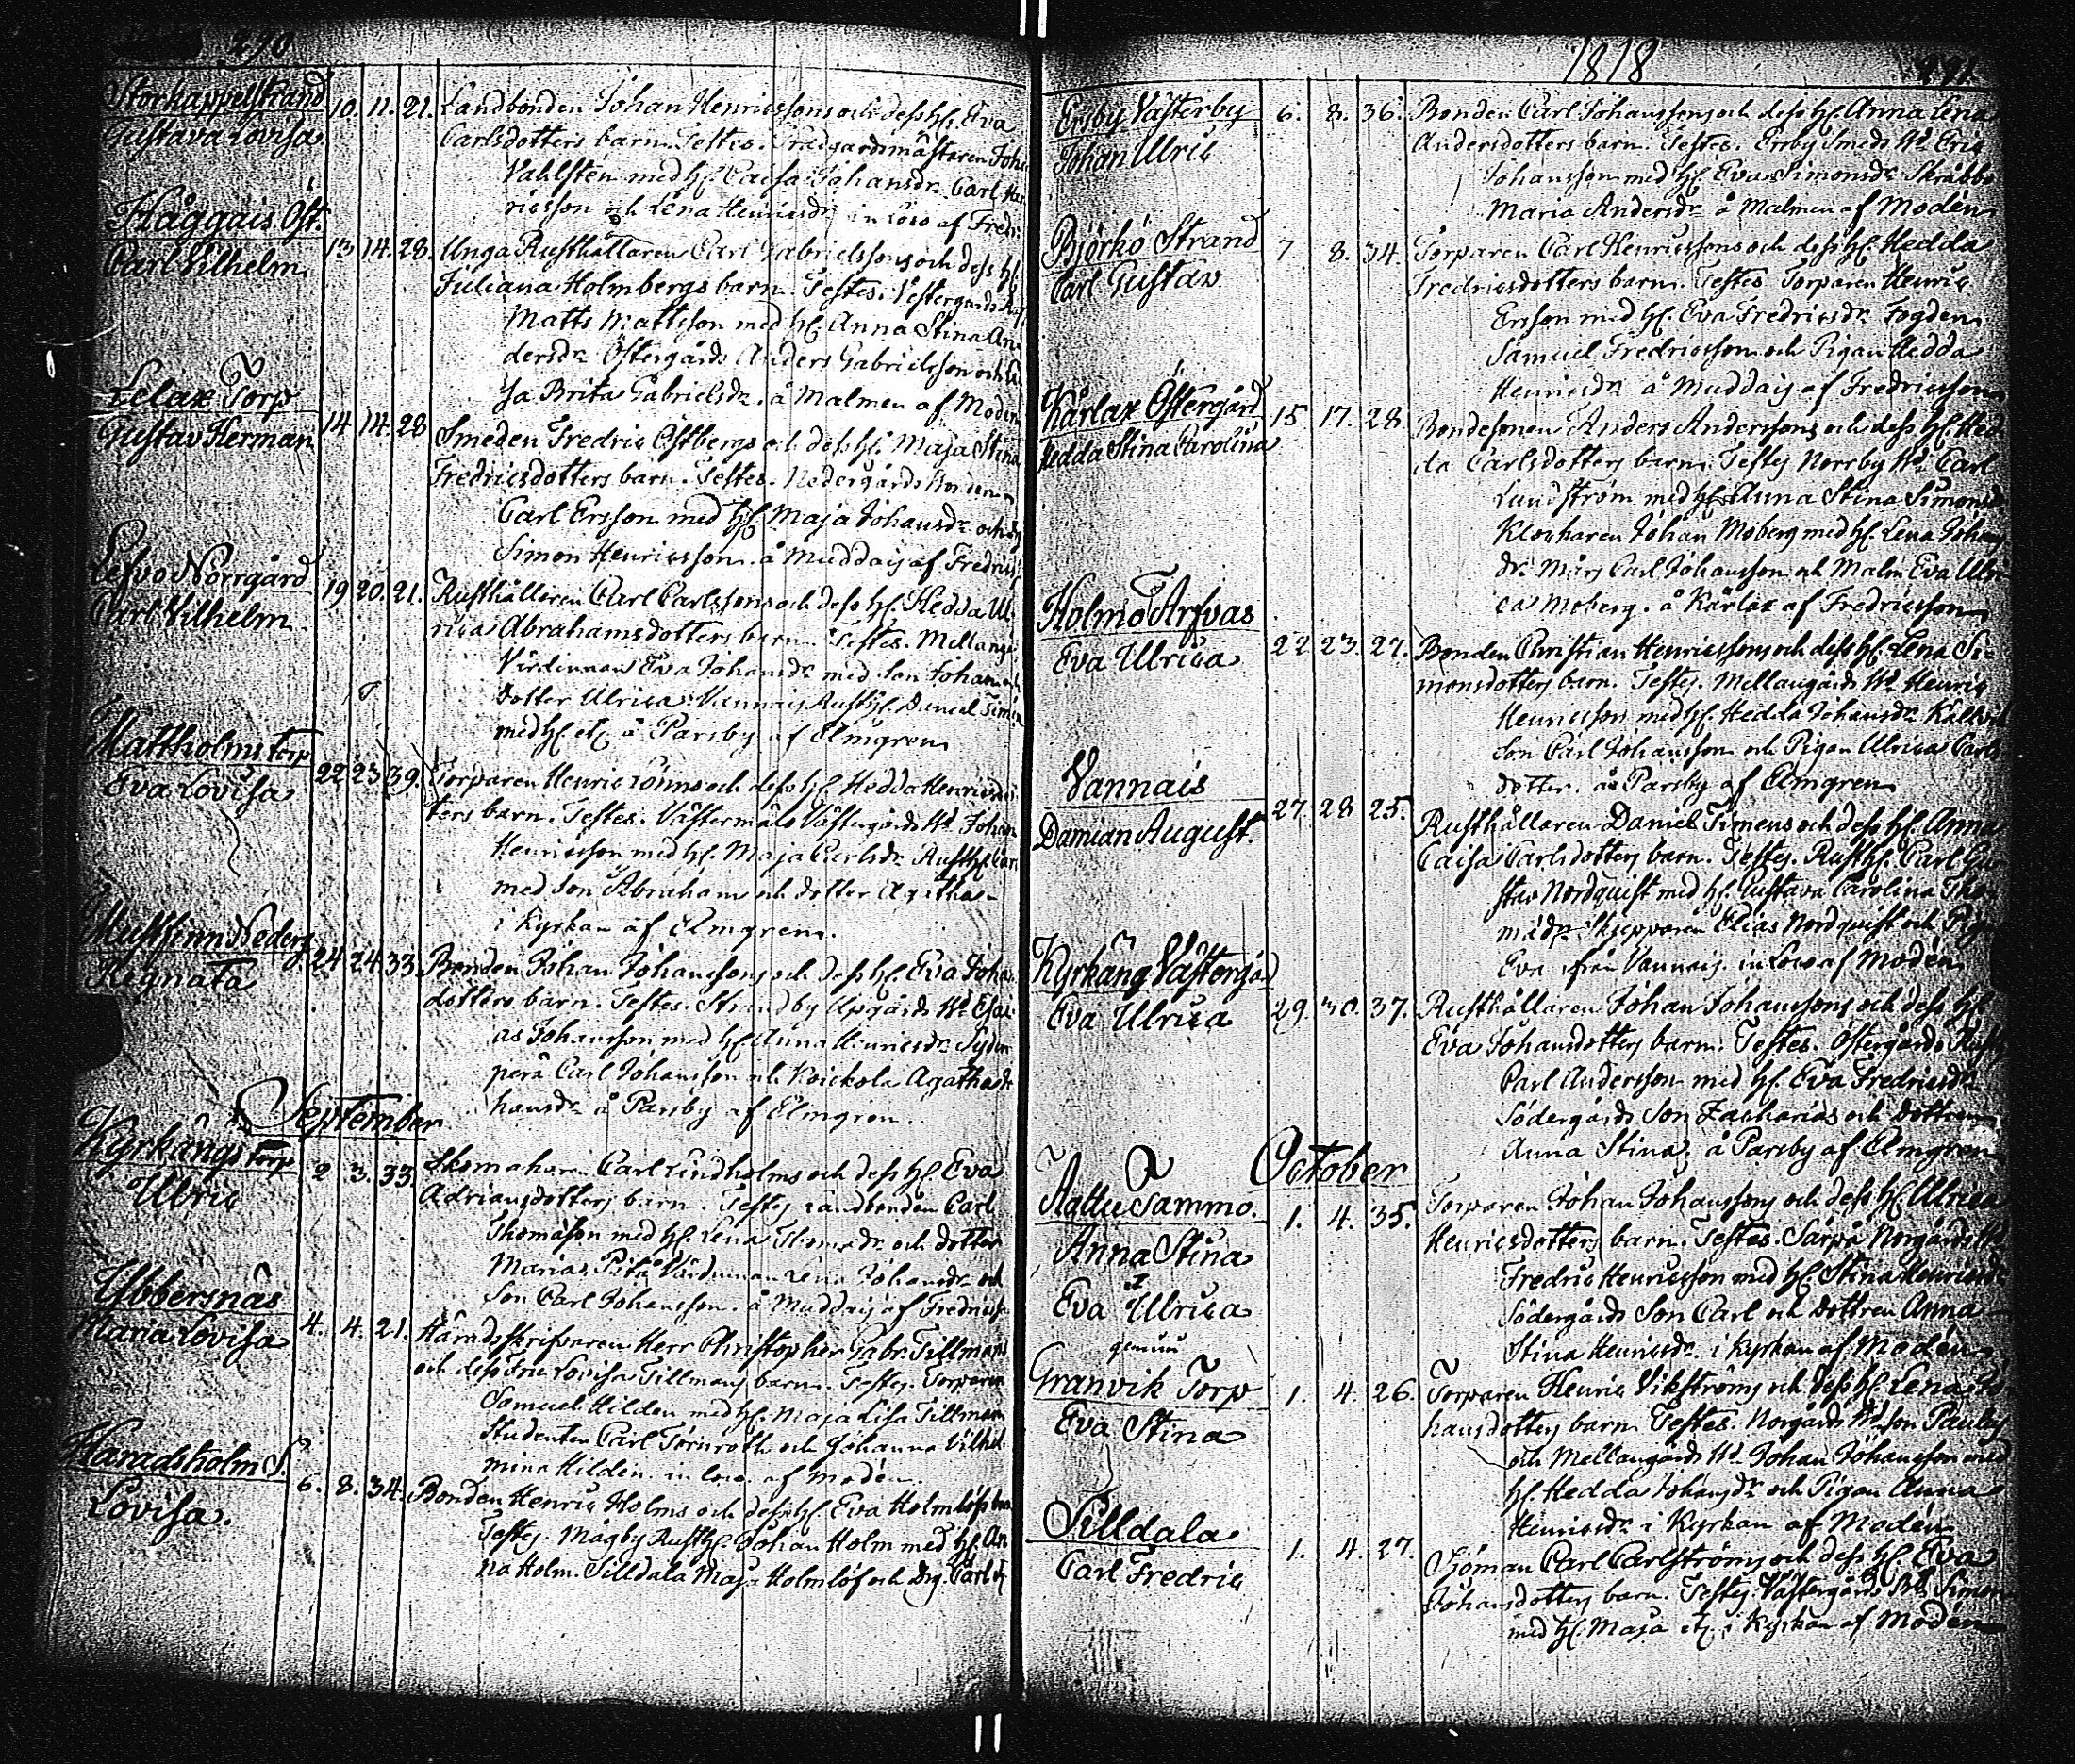 290
Storkappelstrand
Gustava Lovisa.
10. 11. 21. Landbonden Johan Henricssons och dess H. Eva
Carlsdotters barn. Testes. Trädgårdsmästaren Joh
Vahlstén med H. Caisa Johansdr. Carl Hen
ricsson och Lena Henricsdr. in Loco af Fredr.
Håggais Öst.
Carl Vilhelm
13. 14. 28. Unga Rusthållaren Carl Gabrielssons och dess H.
Juliana Holmbergs barn. Testes. Vestergårds
Matts Mattsson med H. Anna Stina An
dersdr. Östergårds Anders Gabrielsson och
Brita Gabrielsdr. å Malmen af Modén
Lelax Torp
Gustav Herman
14 14. 28 Smeden Fredric Östbergs och dess H. Maja Stina
Fredricsdotters barn. Testes. Nedergårds Bonden
Carl Ersson med H. Maja Johansdr. och
Simon Henricsson å Muddais af Fredricss
Lefvo Norrgård
Carl Vilhelm
19 20. 21. Rusthållaren Carl Carlssons och dess H. Hedda Ul
rica Abrahamsdotters barn. Testes. Mellang.
Värdinnan Eva Johansdr. med Son Johan och
Dotter Ulrica. Vannais Rusth. Daniel Simon
med H. etc. å Parsby af Elmgren
Mattholms torp
Eva Lovisa
22 23 39. Torparen Henric Lönns och dess H. Hedda Henricsdot
ters barn. Testes. Västermåls Västergårds Wd. Johan
Henricsson med H. Maja Carlsdr. Rusth. Carl
med Son Abraham och dotter Agatha
i Kyrkan af Elmgren.
Mustfinn Nederg.
Regnata
24 24. 33. Bonden Johan Johanssons och dess H. Eva Johans
dotters barn. Testes. Strandby Upgårds Wd. Esai
as Johansson med H. Anna Henricsdr.
perä Carl Johansson och Koickola Agatha Jo
hansdr. å Parsby af Elmgren.
September
Kyrkängs torp
Ulric
2 3. 33. Skomakaren Carl Lindholms och dess H. Eva
Adriansdotters barn. Testes Landbonden Carl
Thomasson med H. Lena Thomasdr. och dotter
Maria. Värdinnan Lena Johansdr. och
Son Carl Johansson. å Muddais af Fredricss
Ybbersnäs
Maria Lovisa
4. 4. 21. Häradsskrifvaren Herr Christopher Gabr. Tillmans
och dess Fru Lovisa Tillmans barn. Testes. Torparen
Samuel Hilden med H. Maja Lisa Tillman
Studenten Carl Törnroth och Johanna Vilhel
mina Hildén. in loco. af Modén.
Haradsholm S.
Lovisa.
6. 8. 34. Bonden Henric Holms och dess H. Eva Holmlöfs barn
Testes. Mågby Rusth. Johan Holm med H. An
na Holm. Silldala Maja Holmlöf och Drg. Carl
1818
291
Ersby Västerby
Johan Ulric
6. 8. 36. Bonden Carl Johanssons och dess H. Anna Lena
Andersdotters barn. Testes. Ersby Smeds Wd. Eric
Johansson med H. Eva Simonsdr. Skräbbo
Maria Andersdr. å Malmen af Modén
Björkö Strand
Carl Gustav
7. 8. 34. Torparen Carl Henricssons och dess H. Hedda
Fredricsdotters barn. Testes Torparen Henric
Ersson med H. Eva Fredricsdr. Fogden
Samuel Fredricsson och Pigan Hedda
Henricsdr. å Muddais af Fredricsson
Kärlax Östergård
Hedda Stina Carolina
15 17. 28. Bondesonen Anders Anderssons och dess H. Hed
da Carlsdotters barn. Testes Norrby Wd. Carl
Lundström med H. Anna Stina Simonsd
Klockaren Johan Moberg med H. Lena Johans
dr. Carl Johansson och Malm Eva Ulri
ca Moberg. å Kärlax af Fredricsson
Holmö Arfvas
Eva Ulrica
22 23. 27. Bonden Christian Henricssons och dess H. Lena Si
monsdotters barn. Testes. Mellangårds Wd. Henric
Henricsson med H. Hedda Johansdr.
Son Carl Johansson och Pigan Ulrica Carls
dotter. å Parsby af Elmgren
Vannais
Damian August.
27. 28 25. Rusthållaren Daniel Simens och dess H. Anna
Caisa Carlsdotters barn. Testes. Rusth. Carl Gu
stav Nordquist med H. Gustava Carolina
Skepparen Elias Nordquist och Pigan
Eva ifrån Vannais. in Loco af Modén
Kyrkäng Västergård
Eva Ulrica
29. 30. 37. Rusthållaren Johan Johanssons och dess H.
Eva Johansdotters barn. Testes. Östergårds Rusth
Carl Andersson med H. Eva Fredricsdr.
Södergårds Son Zacharias och Dottren
Anna Stina. å Parsby af Elmgren
October
Aattu Sammo.
Anna Stina
&
Eva Ulrica
gemini
1. 4. 35. Torparen Johan Johanssons och dess H. Ulrica
Henricsdotters barn. Testes. Sarpä Norgårds Wd.
Fredric Henricsson med H. Stina Henricsdr
Södergårds Son Carl och Dottren Anna
Stina Henricsdr. i Kyrkan af Modén
Granvik Torp
Eva Stina
1. 4. 26. Torparen Henric Vikströms och dess H. Lena Jo
hansdotters barn Testes. Norgårds Wd. son
och Mellangårds Wd. Johan Johansson med
H. Hedda Johansdr. och Pigan Anna
Henricsdr. i Kyrkan af Modén
Silldala
Carl Fredric
1. 4. 27. Sjöman Carl Carlströms och dess H. Eva
Johansdotters barn. Testes Västergårds Simon
med H. Maja etc. i Kyrkan af Modén